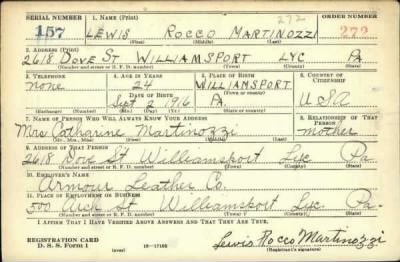 SERIAL NUMBER 1. NAME (Print) 272 ORDER NUMBER
157 LEWIS ROCCO MARTINOZZI 272
(First) (Middle) (Last)
2. ADDRESS (Print)
2618 DOVE ST WILLIAMSPORT LYC PA
(Number and street or R. F. D. number) (Town) (County) (State)
3. TELEPHONE 4. AGE IN YEARS 5. PLACE OF BIRTH 6. COUNTRY OF CITIZENSHIP
none 24 WILLIAMSPORT
DATE OF BIRTH (Town or county)
Sept 2 1916 PA. USA
(Exchange) (Number) (Mo.) (Day) (Yr.) (State or country)
7. NAME OF PERSON WHO WILL ALWAYS KNOW YOUR ADDRESS 8. RELATIONSHIP OF THAT PERSON
Mrs Catharine Martinozzi mother
(Mr., Mrs., Miss) (First) (Middle) (Last)
9. ADDRESS OF THAT PERSON
2618 Dove St. Williamsport Lyc Pa.
(Number and street or R. F. D. number) (Town) (County) (State)
10. EMPLOYER'S NAME
Armour Leather Co.
11. PLACE OF EMPLOYMENT OR BUSINESS
500 Arch St Williamsport Lyc. Pa.
(Number and street or R. F. D. number) (Town) (County) (State)
I AFFIRM THAT I HAVE VERIFIED ABOVE ANSWERS AND THAT THEY ARE TRUE.
REGISTRATION CARD
D. S. S. Form 1 (over) 16-17105 Lewis Rocco Martinozzi
(Registrant's signature)